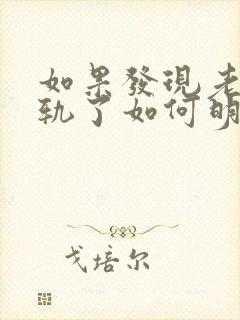 如果發現老
軌了如何明
戈培尔